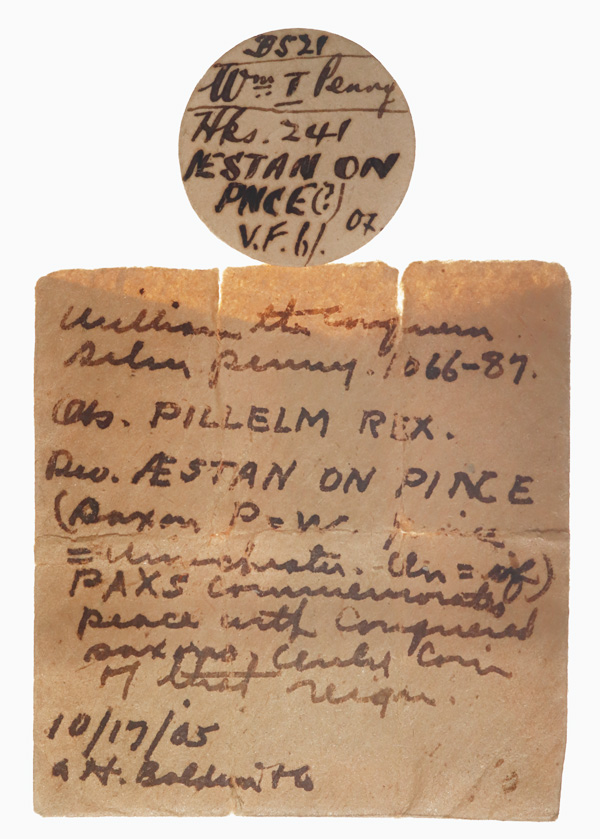 B521
Wm I Penny
Hks. 241
ÆSTAN ON
PNCE(?)
V.F. 6/. 07.
William the Conqueror
Silver penny. 1066-87.
Obs. PILLELM REX.
Rev. ÆSTAN ON PINCE
(Saxon P=W. pince
= Winchester. On = of)
PAXS commemorates
peace with Conquered
saxons, Coin
of that reign.
10/17/05
A H. Baldwin & Co